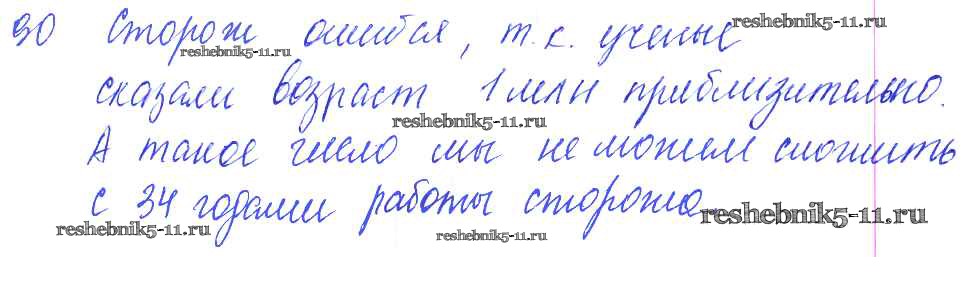 90 Сторож ошибся, т.к. ученые
сказали возраст 1 млн приблизительно.
А такое число мы не можем сложить
с 34 годами работы сторожа.
reshebnik5-11.ru
reshebnik5-11.ru
reshebnik5-11.ru
reshebnik5-11.ru
reshebnik5-11.ru
reshebnik5-11.ru